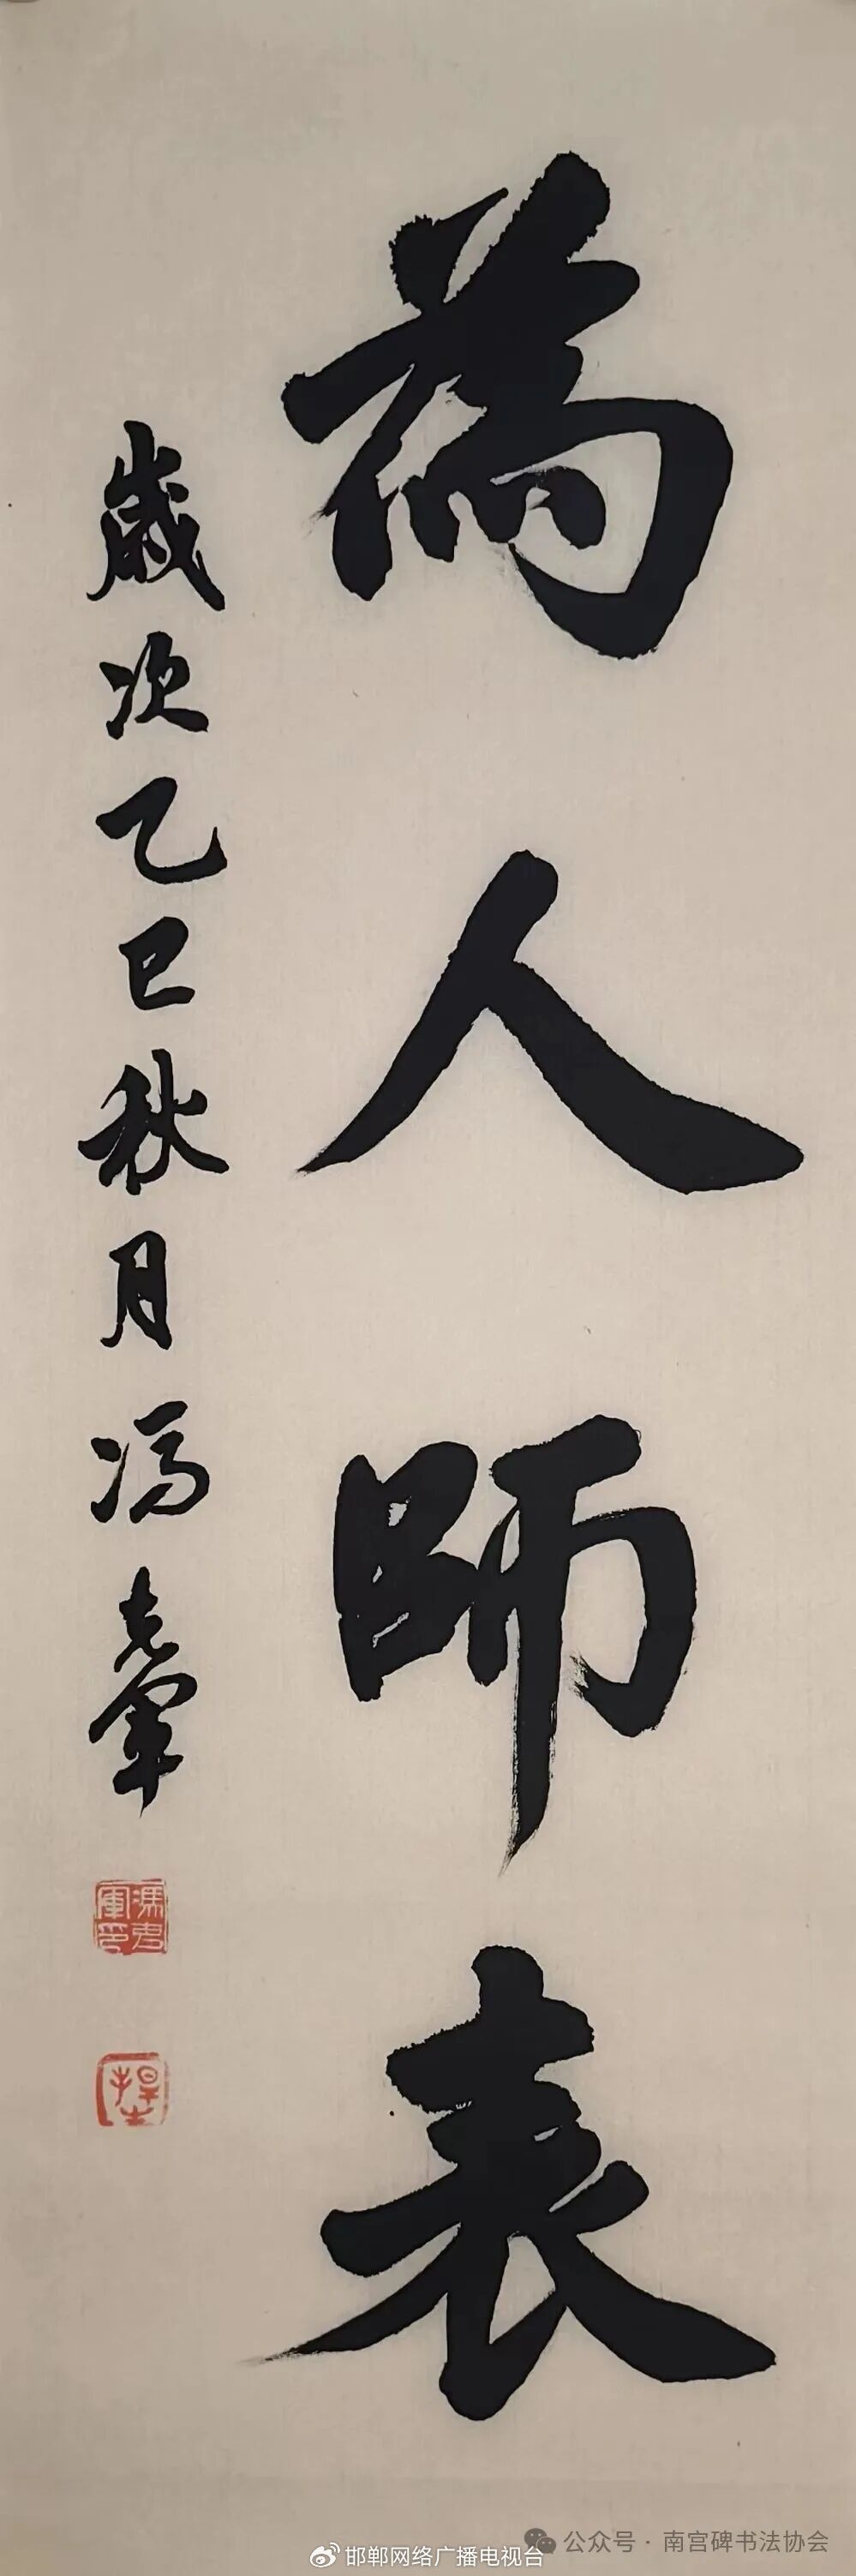 為人師表
歲次乙巳秋月馮克軍
邯郸网络广播电视台
公众号·南宫碑书法协会